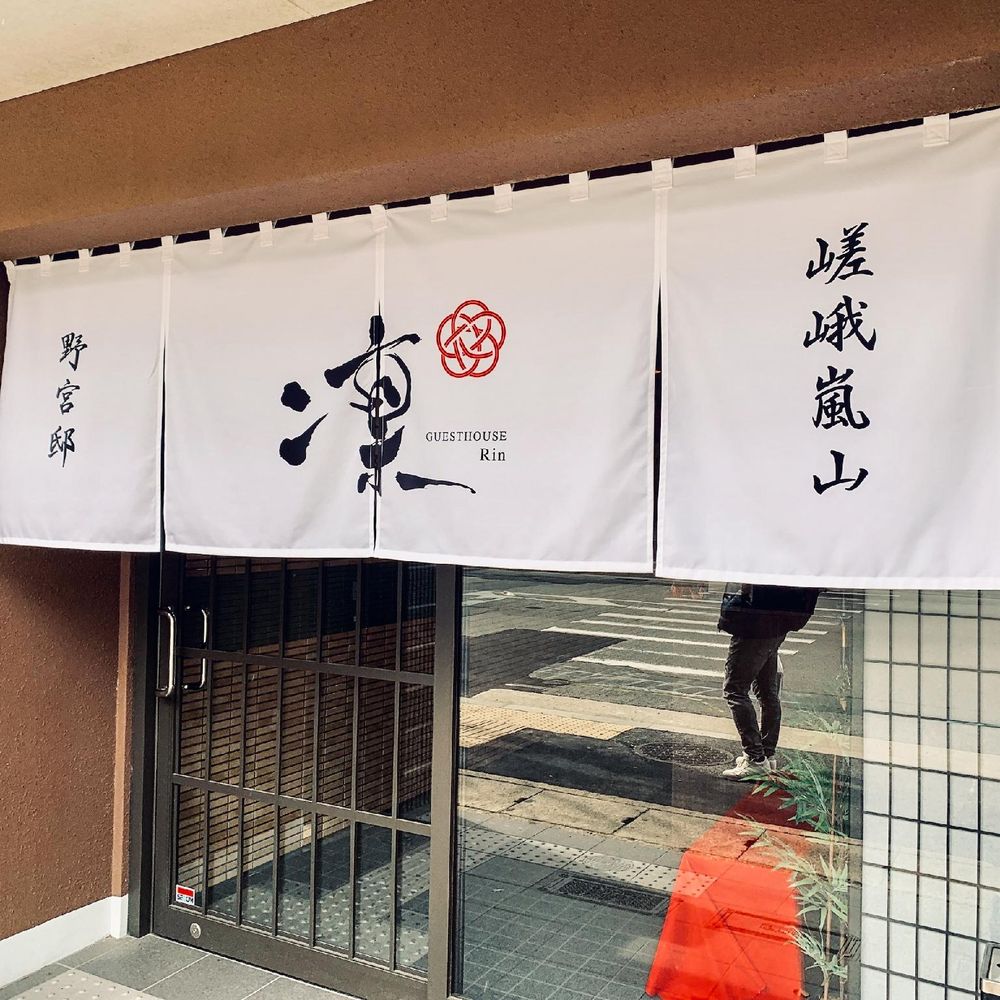 嵯峨嵐山
凜
GUESTHOUSE
Rin
野宮邸